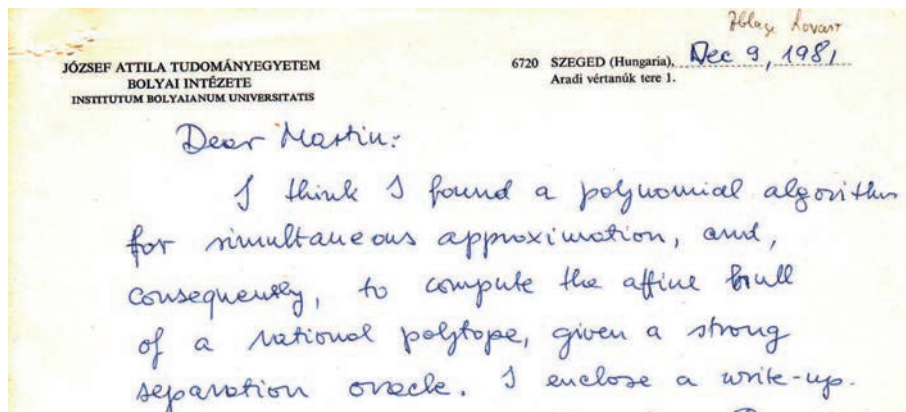 Lovasz
JÓZSEF ATTILA TUDOMÁNYEGYETEM
BOLYAI INTÉZETE
INSTITUTUM BOLYAIANUM UNIVERSITATIS
6720 SZEGED (Hungaria), Dec 9, 1981
Aradi vértanúk tere 1.
Dear Martin:
I think I found a polynomial algorithm
for simultaneous approximation, and,
consequently, to compute the affine hull
of a rational polytope, given a strong
separation oracle. I enclose a write-up.